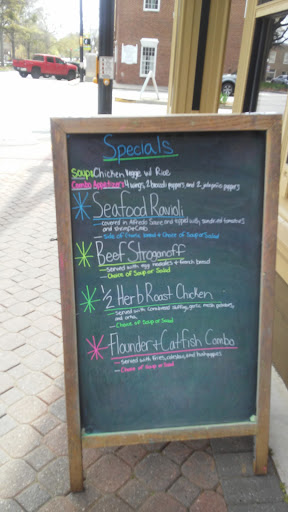 Specials
Soup: Chicken Veggie w/ Rice
Combo Appetizer: 4 wings, 2 broccoli poppers, and 2 jalapeño poppers
Seafood Ravioli
—covered in Alfredo Sauce and topped with sundried tomatoes
and shrimp
— Side of Choice Choice of Soup or Salad
Beef Stroganoff
—served with egg noodles & french bread
—Choice of Soup or Salad
1/2 Herb Roast Chicken
—Served with Cornbread stuffing, garlic mash potatoes,
and
—Choice of Soup or Salad
Flounder + Catfish Combo
—Served with Fries, coleslaw, and hushpuppies
—Choice of Soup or Salad